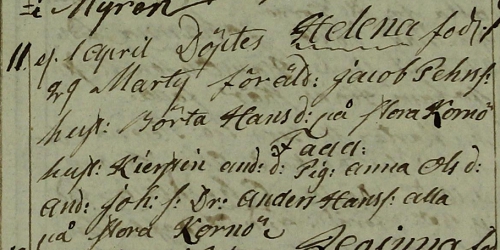 i Myren
11. ej. 1 April Döptes Helena föd:
29 Marty föräld: Jacob Pehrs:
hust: Börta Hans d: på stora Kornö
Fadd:
hust: Kierstin and: d: Pig: anna Ols d:
and: joh: s: Dr: anders Hans: alla
på stora Kornö